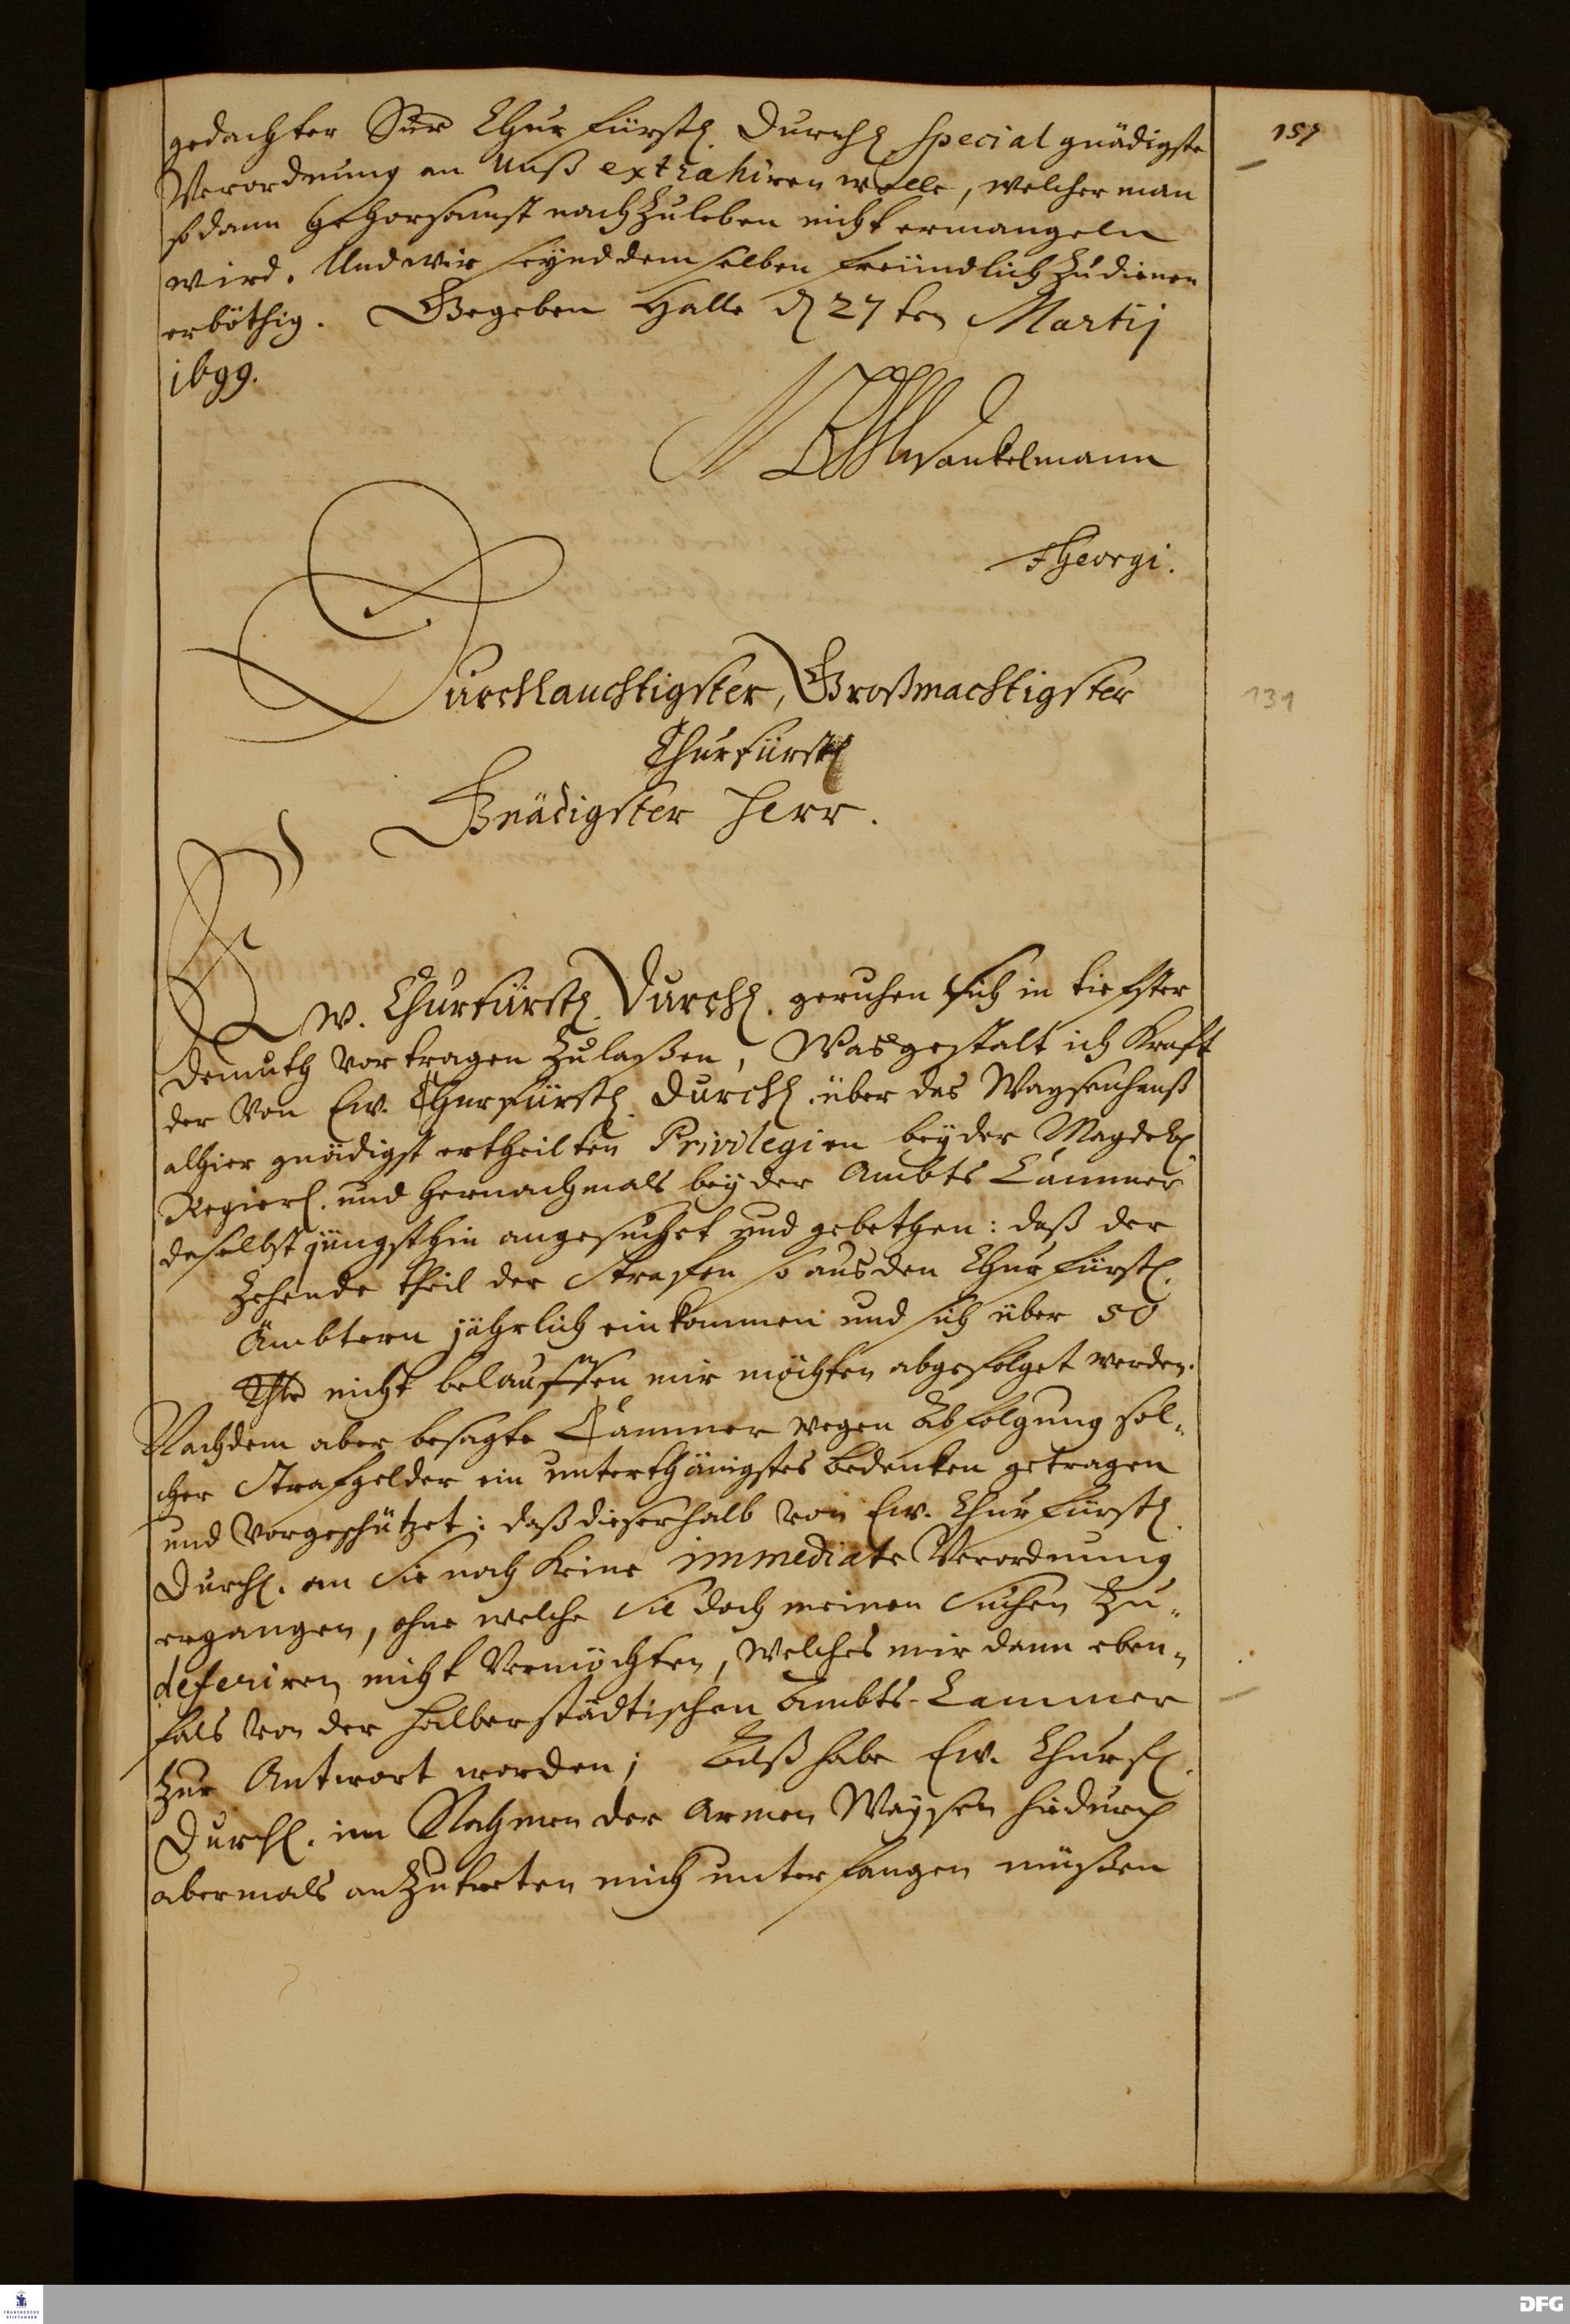 157
gedachter Sr Churfürstl. Durchl. special gnädigste
Verordnung an Unß extrahiren wolle, welcher man
so dann gehorsamst nachzuleben nicht ermangeln
wird. Und wir seynd demselben freündlich zu dienen
erböthig. Gegeben Halle d 27ten Martij
1699.
Dankelmann
Georgi.
Durchlauchtigster, Großmachtigster
131
Churfürst
Gnädigster Herr.
Ew. Churfürstl. Durchl. geruhen sich in tiefster
Demuth vortragen zulaßen, Was gestalt ich Kraft
der von Ew. Churfürstl. Durchl. über das Waysenhauß
alhier gnädigst ertheilten Privilegien bey der Magdeb.
Regier. und hernachmals bey der Ambts Cammer
daselbst jüngsthin angesuchet und gebethen: daß der
Zehende theil der Strafen so aus den Churfürstl.
Ämbtern jährlich einkommen und sich über 50
Thlr nicht belauffen mir möchten abgefolget werden.
Nachdem aber besagte Cammer wegen Abfolgung sol-
cher Strafgelder ein unterthänigstes bedenken getragen
und vorgeschützet: daß dieserhalb von Ew. Churfürstl.
Durchl. an Sie noch keine immediate Verordnung
ergangen, ohne welche Sie doch meinen Suchen zu-
deferiren nicht vermöchten, Welches mir dann eben-
fals von der Halberstädtischen Ambts-Cammer
zur Antwort worden; Alß habe Ew. Churfl.
Durchl. im Nahmen der Armen Waysen hiedurch
abermals anzutreten mich unterfangen müßen
FRANCKESCHE
STIFTUNGEN
DFG